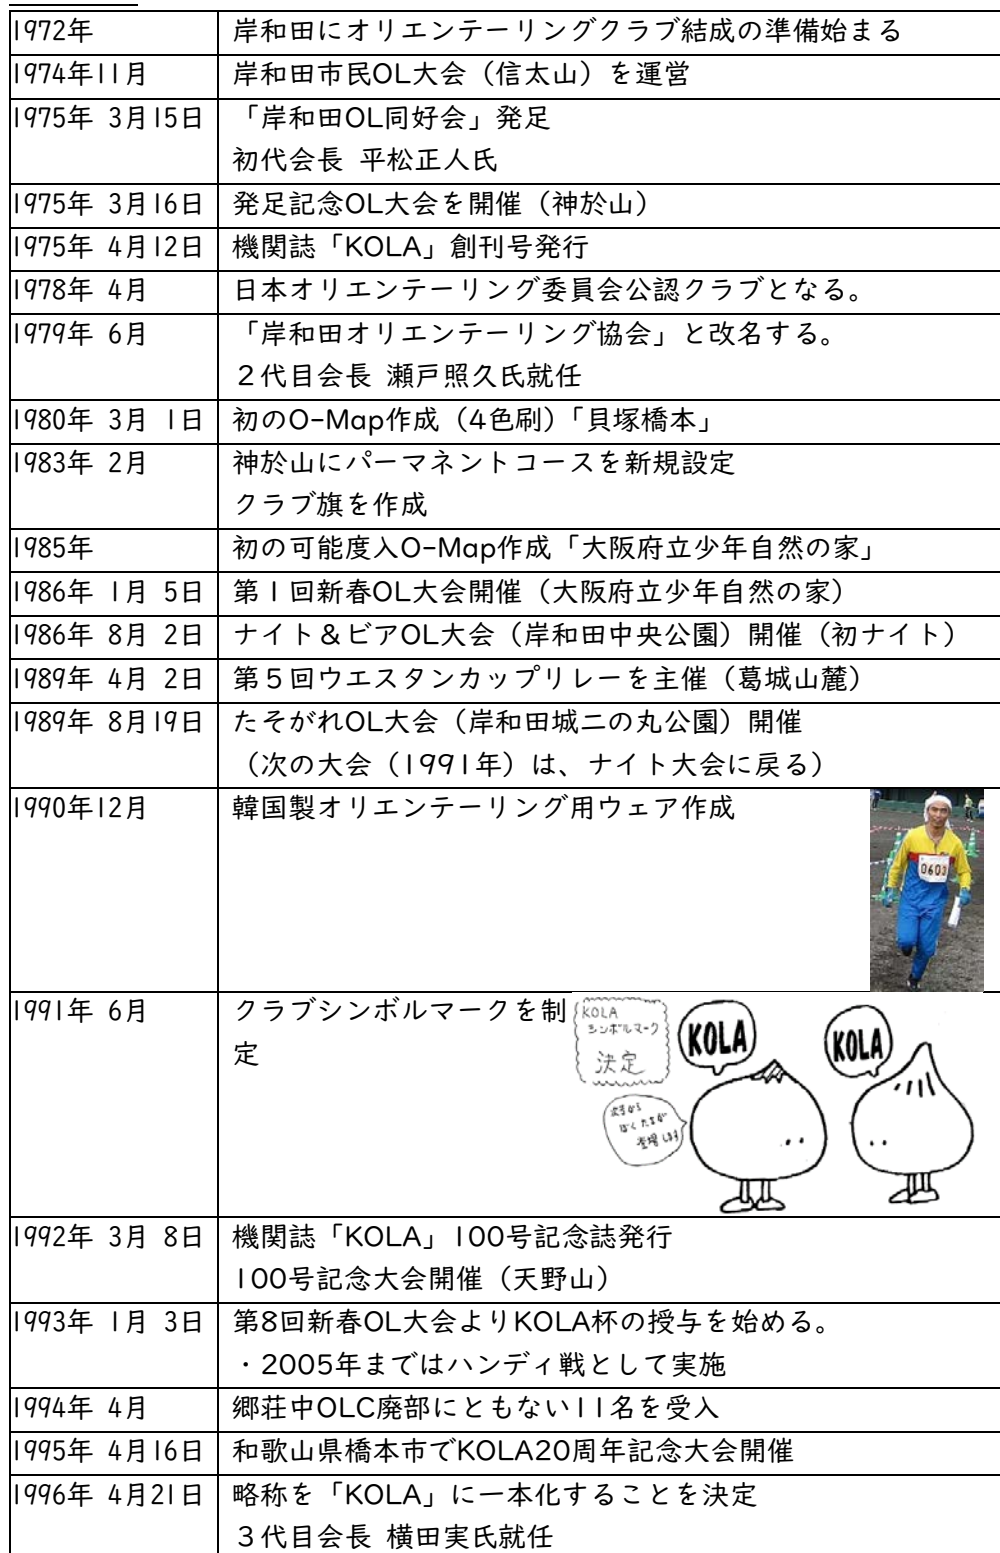 1972年 岸和田にオリエンテーリングクラブ結成の準備始まる
1974年11月 岸和田市民OL大会（信太山）を運営
1975年 3月15日 「岸和田OL同好会」発足
初代会長 平松正人氏
1975年 3月16日 発足記念OL大会を開催（神於山）
1975年 4月12日 機関誌「KOLA」創刊号発行
1978年 4月 日本オリエンテーリング委員会公認クラブとなる。
1979年 6月 「岸和田オリエンテーリング協会」と改名する。
２代目会長 瀬戸照久氏就任
1980年 3月 1日 初のO-Map作成（4色刷）「貝塚橋本」
1983年 2月 神於山にパーマネントコースを新規設定
クラブ旗を作成
1985年 初の可能度入O-Map作成「大阪府立少年自然の家」
1986年 1月 5日 第１回新春OL大会開催（大阪府立少年自然の家）
1986年 8月 2日 ナイト＆ビアOL大会（岸和田中央公園）開催（初ナイト）
1989年 4月 2日 第５回ウエスタンカップリレーを主催（葛城山麓）
1989年 8月19日 たそがれOL大会（岸和田城二の丸公園）開催
（次の大会（1991年）は、ナイト大会に戻る）
1990年12月 韓国製オリエンテーリング用ウェア作成
0603
1991年 6月 クラブシンボルマークを制
定
KOLA
シンボルマーク
決定
KOLA
KOLA
次号から
ぼくたちが
登場します
1992年 3月 8日 機関誌「KOLA」100号記念誌発行
100号記念大会開催（天野山）
1993年 1月 3日 第8回新春OL大会よりKOLA杯の授与を始める。
・2005年まではハンディ戦として実施
1994年 4月 郷荘中OLC廃部にともない11名を受入
1995年 4月16日 和歌山県橋本市でKOLA20周年記念大会開催
1996年 4月21日 略称を「KOLA」に一本化することを決定
３代目会長 横田実氏就任